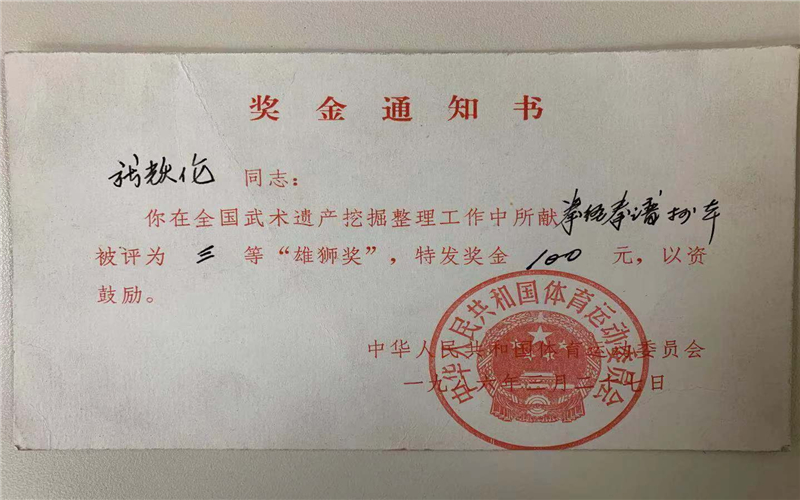 奖金通知书
张耀伦 同志：
你在全国武术遗产挖掘整理工作中所献拳经拳谱抄本
被评为 三 等“雄狮奖”，特发奖金 100 元，以资
鼓励。
中华人民共和国体育运动委员会
一九八六年三月二十七日
中华人民共和国体育运动委员会